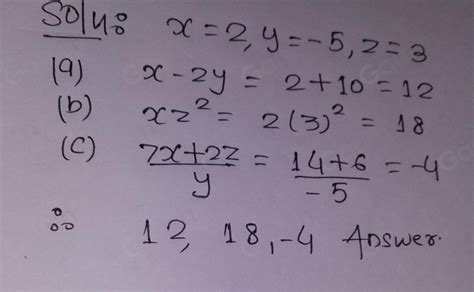 Soln: x = 2, y = -5, z = 3
(a) x - 2y = 2 + 10 = 12
(b) xz² = 2(3)² = 18
(c) 7x+2z/y = 14+6/-5 = -4
∴ 12, 18, -4 Answer.